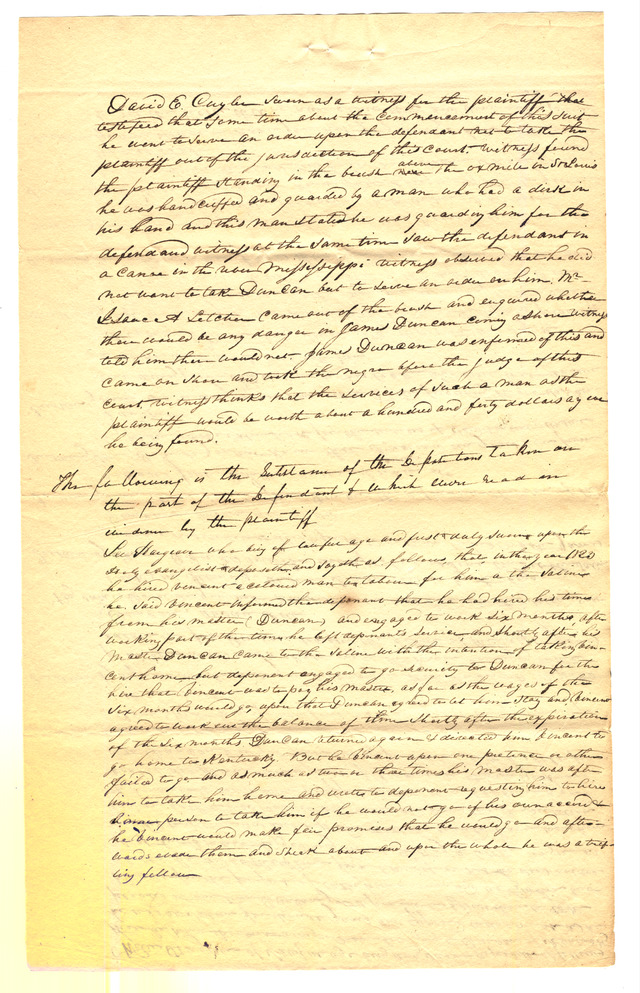 David E. Cuyler sworn as a witness for the plaintiff that
testefied that some time about the Commencement of his suit
he went to serve an order upon the defendant not to take the
plaintiff out of the jurisdiction of this court. Witness found
the plaintiff standing in the brush above the ox mill in St Louis
he was handcuffed and guarded by a man who had a dirk in
his hand and this man stated he was guarding him for the
defendand witness at the same time saw the defendant in
a canoe in the river Messessippi witness observed that he did
not want to take Duncan but to serve an order on him. Mr
Isaac A Letcher came out of the brush and enquired whether
there would be any danger in James Duncan coming ashore witness
told him there would not. James Duncan was enformed of this and
came on shore and took the negro before the judge of this
court. Witness thinks that the services of such a man as the
plaintiff would be worth about a hundred and fifty dollars a year
he being found.
The following is the Substance of the Depositions taken on
the part of the Defendant & which were read in
evidence by the plaintiff
who being of lawful age and first duly sworn upon the
Holy evangelist deposeth and Sayeth as follows, that in the year 1820
he hired vincent a colored man to labour for him at the Saline
he, said Vincent informed the deponant that he had hired his time
from his master (Duncan) and engaged to work six months, after
working part of the time, he left deponents Service and Shortly after his
Master Duncan came to the Saline with the intention of taking vin
cent home but deponent engaged to go security to Duncan for the
hire that vincent was to pay his master, as far as the wages of the
Six months would go, upon that Duncan agreed to let him stay and Vincent
agreed to work out the balance of time Shortly after the expiration
of the six months Duncan returned again & directed him Vincent to
go home to Kentucky. But he Vincent upon one pretence or other
failed to go and as much as two or three times his master was after
him to take him home and wrote to deponent requesting him to hire
some person to take him if he would not go of his own accord
he Vincent would make fair promises that he would go and after-
wards evade them and Sherk about and upon the whole he was a trif
ling fellow